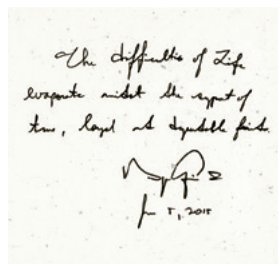 The difficulties of Life
evaporate midst the support of
true, loyal and dependable friends.
5, 2015